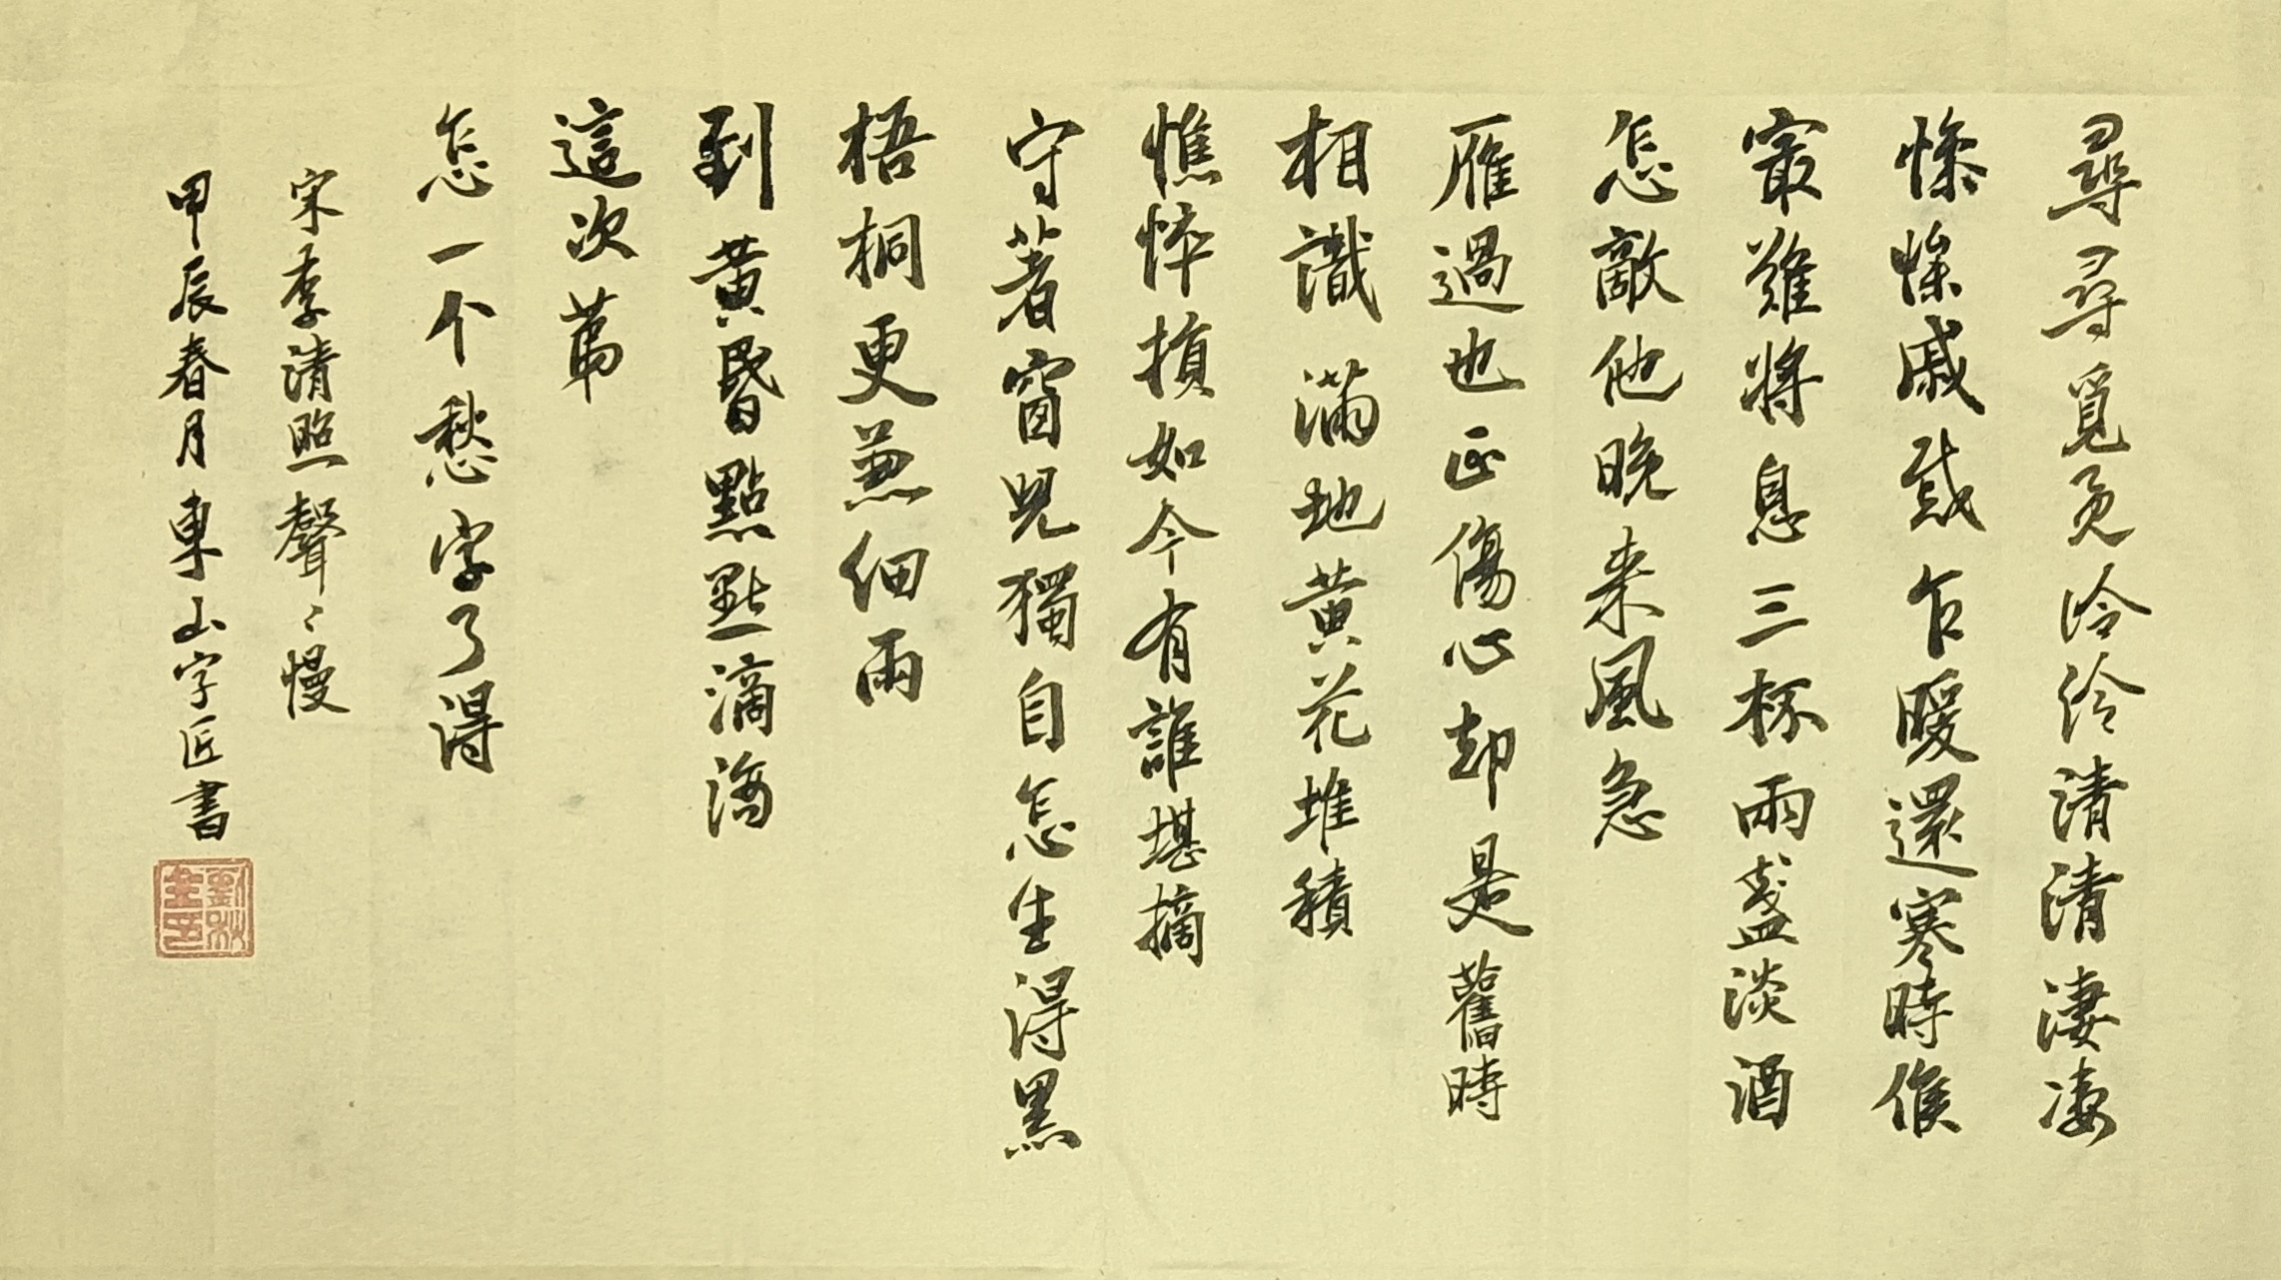 尋尋覓覓冷冷清清淒淒
慘慘戚戚乍暖還寒時候
最難將息三杯兩盞淡酒
怎敵他晚来風急
雁過也正傷心却是舊時
相識滿地黃花堆積
憔悴損如今有誰堪摘
守著窗兒獨自怎生得黑
梧桐更兼細雨
到黃昏點點滴滴
這次第
怎一个愁字了得
宋李清照聲〻慢
甲辰春月東山字匠書
劉秋
全印